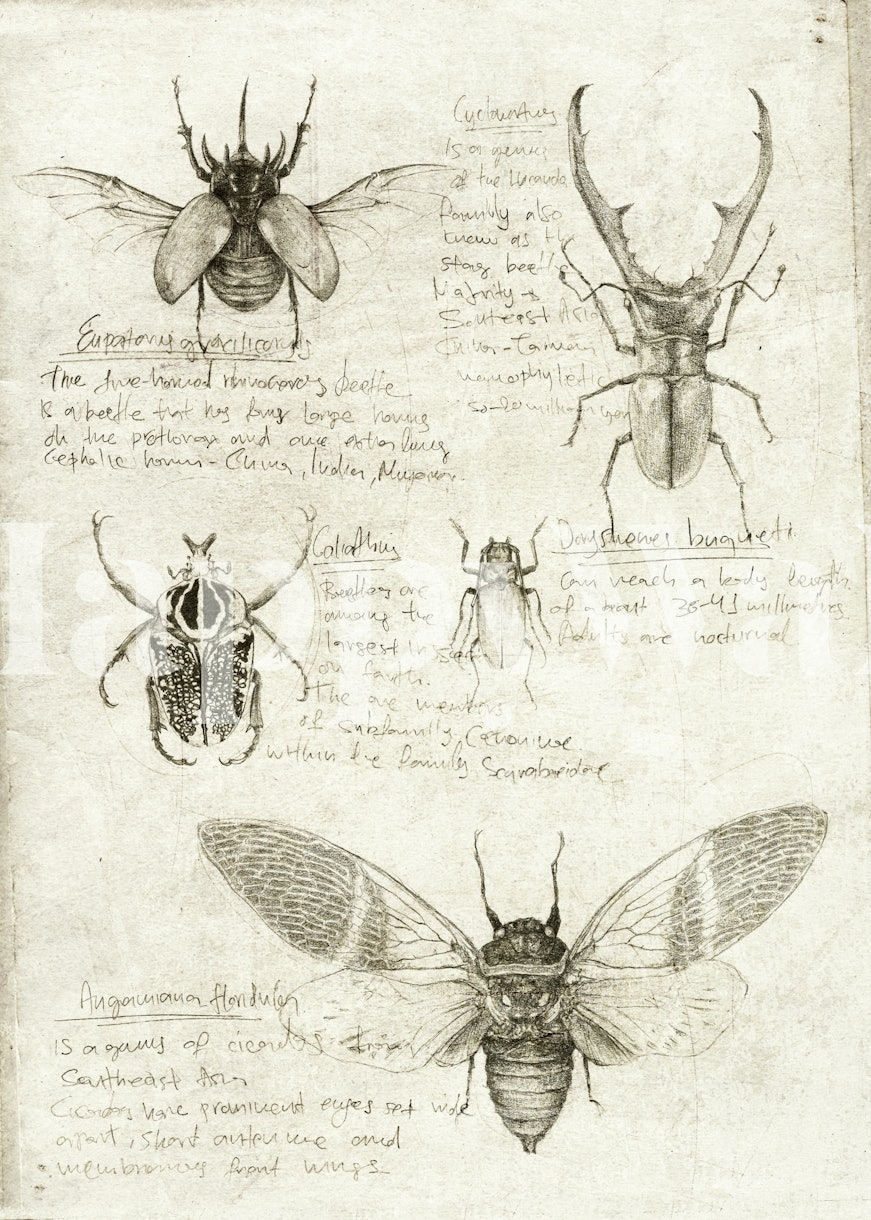 Cyclommatus
is a genus
of the Lucanida
family also
known as the
stag beetle
Majority →
Southeast Asia
China - Taiwan
monophyletic
50-20 million years
Eupatorus gracilicornis
The five-horned rhinoceros beetle
is a beetle that has four large horns
on the prothorax and one extra long
cephalic horn - China, India, Myanmar.
Goliathus
Beetles are
among the
largest in size
on Earth.
The are members
of subfamily Cetoniinae
within the family Scarabaeidae
Doryshenes buqueti
Can reach a body length
of about 36-41 millimetres
Adults are nocturnal
Angamiana floridula
is a genus of cicadas from
Southeast Asia
Cicadas have prominent eyes set wide
apart, short antennae and
membranous front wings